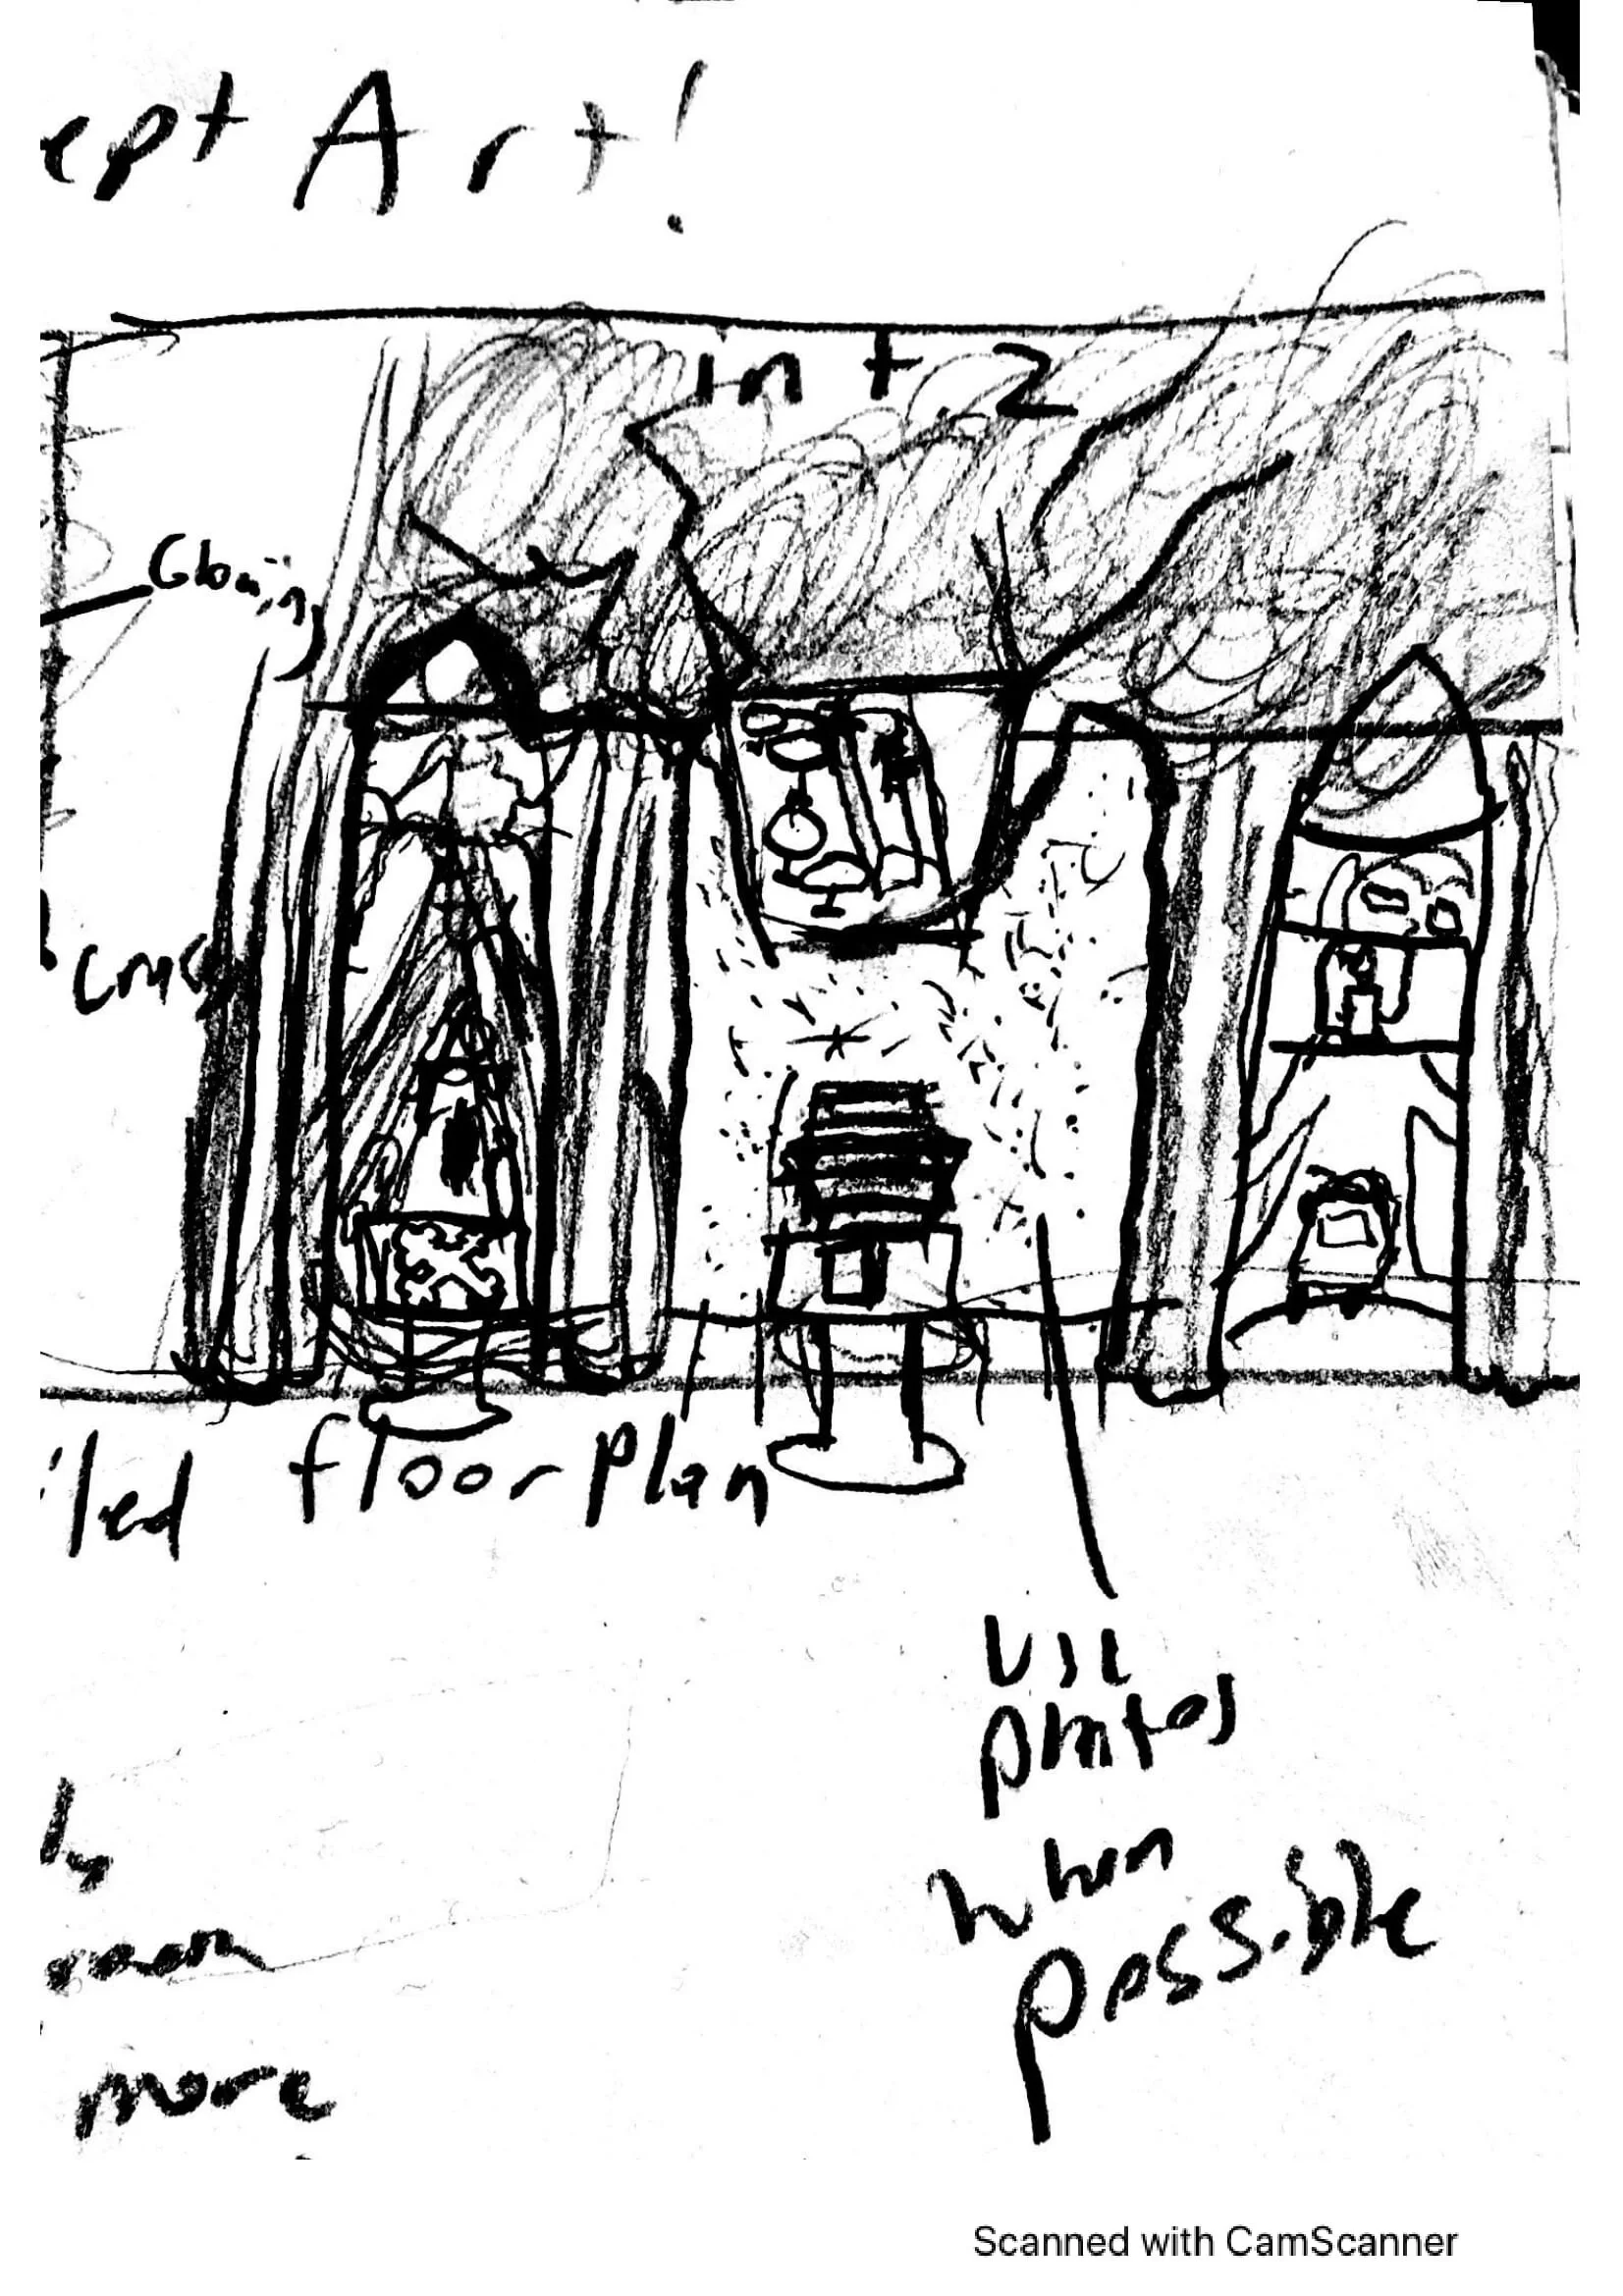 ept Art!
int 2
Glowing
crack
iled floor plan
Use
photos
when
possible
more
Scanned with CamScanner